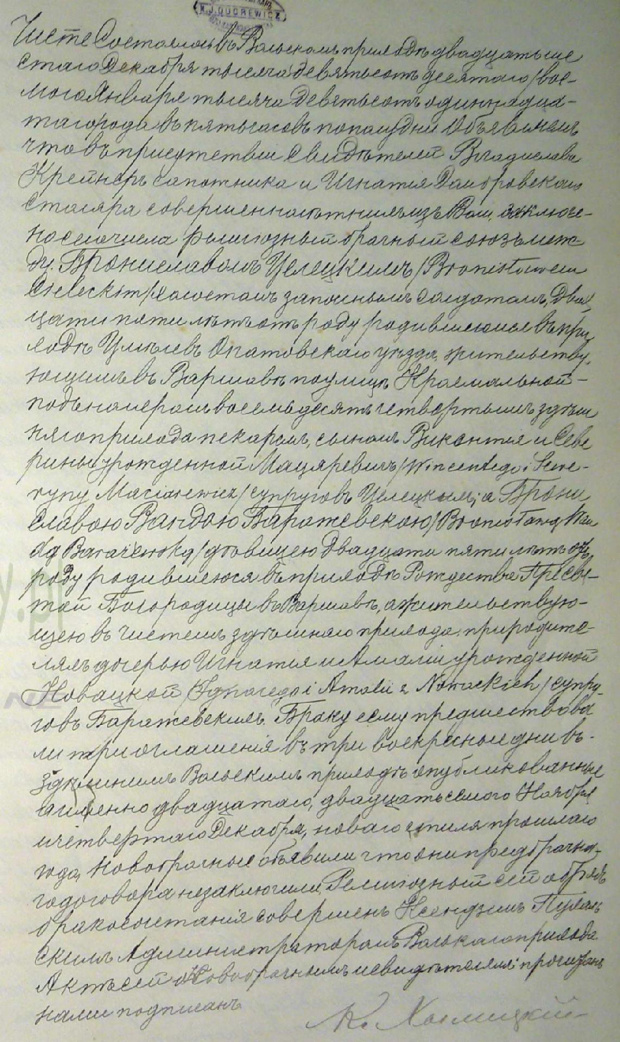 K. J. DUCREWICZ
Чисте Состоялось въ Вольскомъ приходѣ двадцать ше
стаго Декабря тысяча девятьсотъ десятаго /вос-
мого Января тысяча девятьсотъ одиннадца-
таго года въ пять часовъ по полудни. Объявляемъ
что въ присутствіи Свидѣтелей Владислава
сапожника и Игнатія Домбровскаго
Столяра совершеннолѣтнихъ изъ Воли заключе-
но сего числа религіозный брачный союзъ меж-
ду Брониславомъ Целецкимъ /Bronisławem
Cieleckim/ холостымъ запаснымъ солдатомъ, Двад
цати пяти лѣтъ отъ роду родившимся въ при
ходѣ Опатовскаго уѣзда, жительству-
ющимъ въ Варшавѣ по улицѣ Крохмальной-
подъ номеромъ восемьдесятъ четвертымъ здѣш
няго прихода пекаремъ, сыномъ Викентія и Севе
рины урожденной Мацяревичъ /Wincentego i Seve-
ryny Maciarewicz/ супруговъ Целецкихъ; а Брони
славою Вандою Баратевскою /Bronisławą Wan
dą / дѣвицею двадцати пяти лѣтъ отъ
роду родившеюся въ приходѣ Рождества Пресвя-
той Богородицы въ Варшавѣ, а жительствую-
щею въ Чистемъ здѣшняго прихода при родите-
ляхъ дочерью Игнатія и Амаліи урожденной
Новацкой /Ignacego i Amalii z Nowackich/ супру-
говъ Баратевскихъ. Браку сему предшествова
ли три оглашенія въ три воскресные дни въ-
здѣшнемъ Вольскомъ приходѣ опубликованные
а именно двадцатаго, двадцать седьмого Ноября
и четвертаго Декабря, новаго стиля прошлаго
года, Новобрачные объявили что они предбрачна-
го договора незаключили Религіозный сей обрядъ
бракосочетанія совершенъ Ксендзомъ
Администраторомъ Вольскаго прихода
Актъ сей Новобрачнымъ и свидѣтелямъ прочитанъ
нами подписанъ
К.